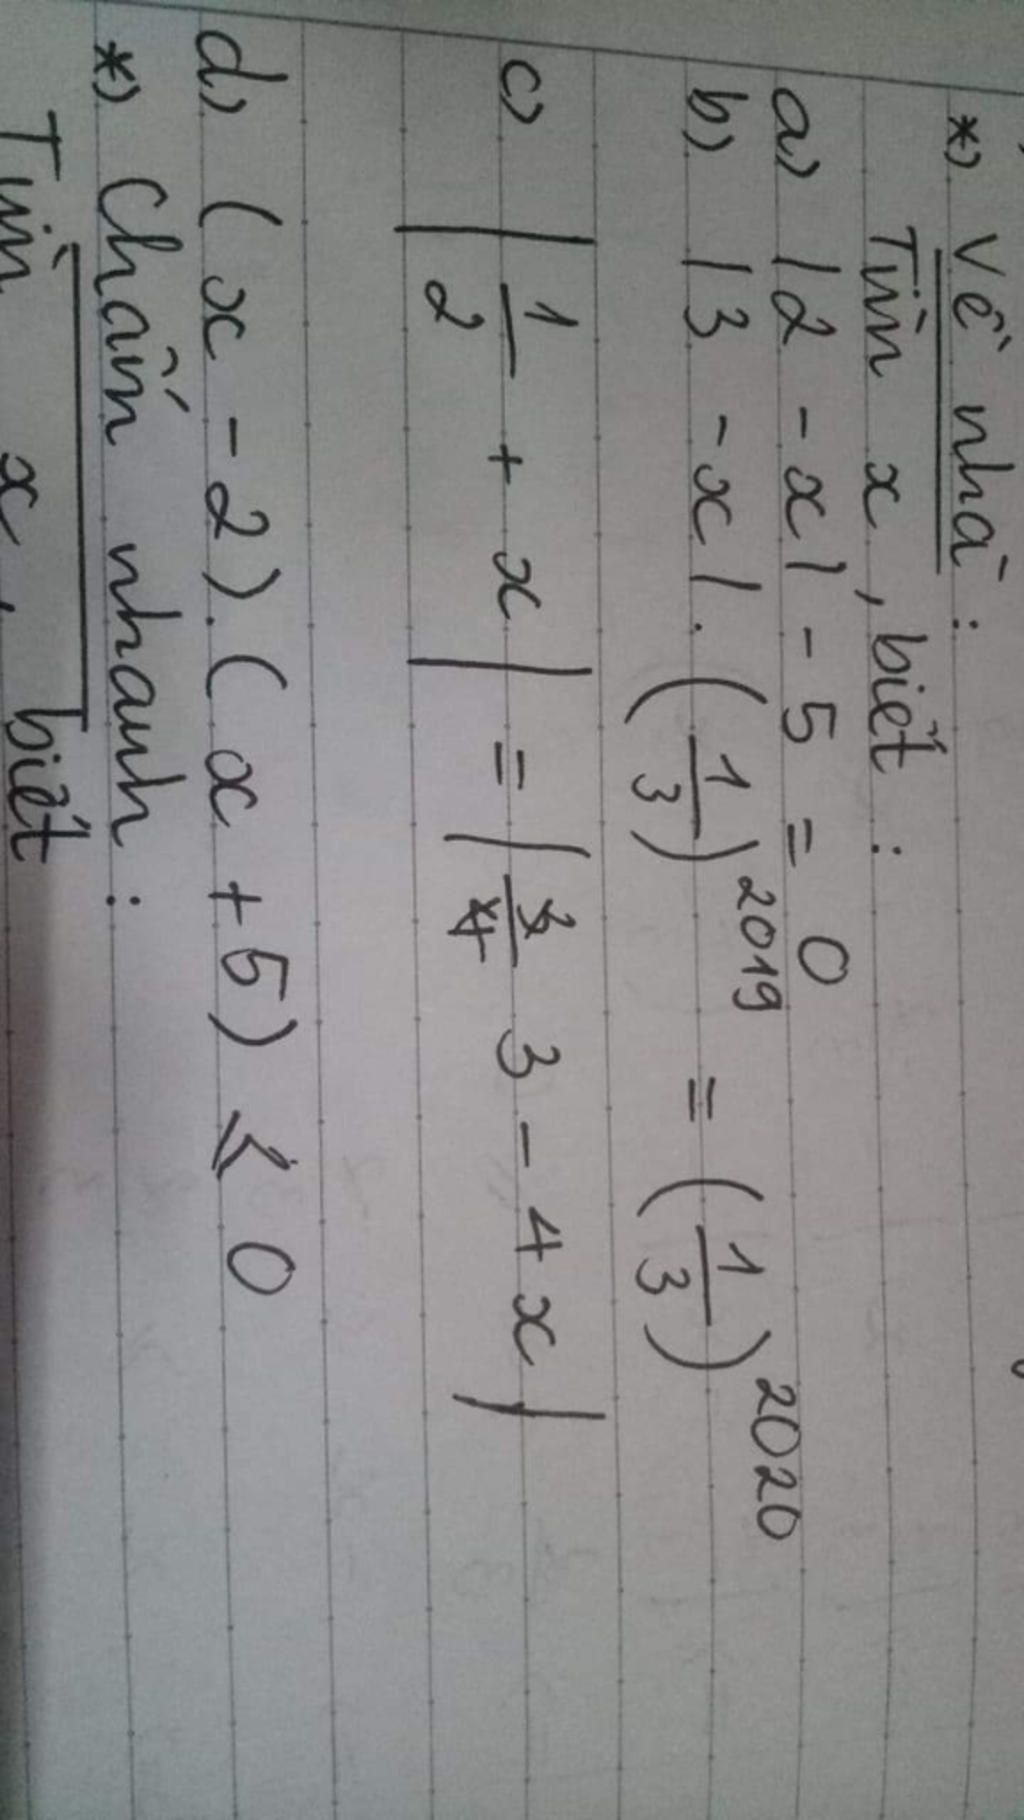 *) Về nhà :
Tìm x, biết :
a) |2 - x| - 5 = 0
b) |3 - x| . (1/3)^2019 = (1/3)^2020
c) |1/2 + x| = |3 - 4x|
d) (x - 2) . (x + 5) ⩽ 0
*) Chấn nhanh :
Tìm x, biết